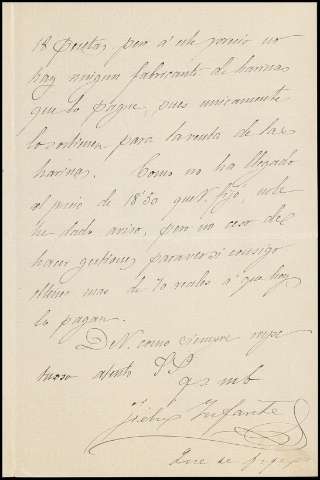 18 pesetas pero á este precio no
hay ningun fabricante de harinas
que lo pague, pues unicamente
lo sostienen para la venta de las
harinas. Como no ha llegado
al precio de 18'50 que V. fijó, no le
he dado aviso, pero no ceso de
hacer gestiones para ver si consigo
obtener mas de 70 reales á que hoy
lo pagan.
De V. como siempre respe
tuoso atento S.S.
q s m b
Infante